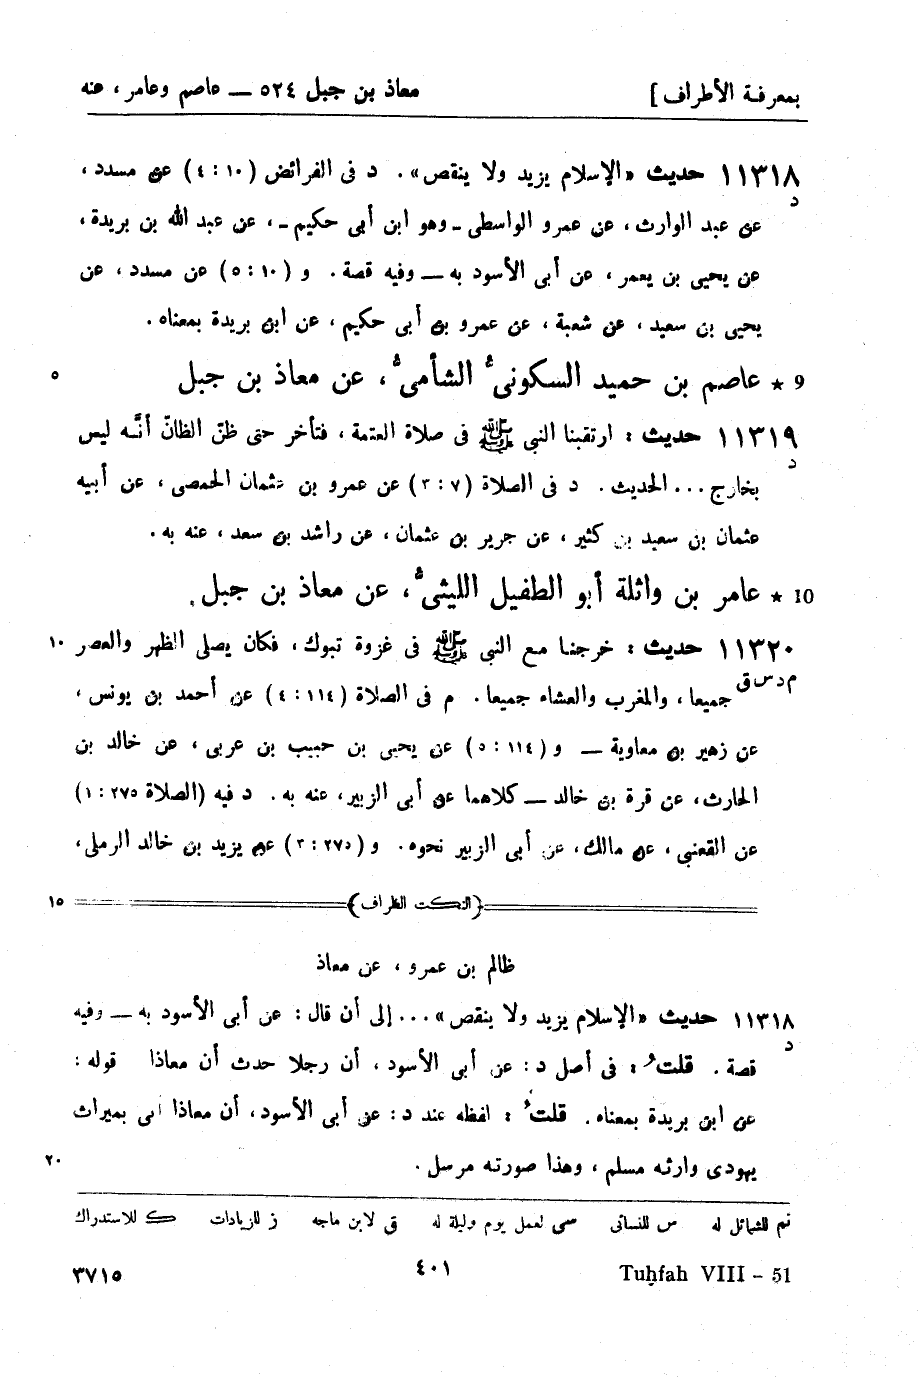 بمعرفة الأطراف ] معاذ بن جبل ٥٢٤ — عاصم وعامر ، عنه
١١٣١٨ حديث «الإسلام يزيد ولا ينقص» . د فى الفرائض (١٠ : ٤) عن مسدد ،
د
عن عبد الوارث ، عن عمرو الواسطى ـ وهو ابن أبى حكيم ـ ، عن عبد الله بن بريدة ،
عن يحيى بن يعمر ، عن أبى الأسود به — وفيه قصة . و (١٠ : ٥) عن مسدد ، عن
يحيى بن سعيد ، عن شعبة ، عن عمرو بن أبى حكيم ، عن ابن بريدة بمعناه .
9 ★ عاصم بن حميد السكونى الشأمى ، عن معاذ بن جبل ٥
١١٣١٩ حديث : ارتقبنا النبى ﷺ فى صلاة العتمة ، فتأخر حتى ظنّ الظانّ أنَّه ليس
د
بخارج ... الحديث . د فى الصلاة (٧ : ٣) عن عمرو بن عثمان الحمصى ، عن أبيه
عثمان بن سعيد بن كثير ، عن جرير بن عثمان ، عن راشد بن سعد ، عنه به .
10 ★ عامر بن واثلة أبو الطفيل الليثى ، عن معاذ بن جبل .
١١٣٢٠ حديث : خرجنا مع النبى ﷺ فى غزوة تبوك ، فكان يصلى الظهر والعصر ١٠
م د س ق
جميعا ، والمغرب والعشاء جميعا . م فى الصلاة (١١٤ : ٤) عن أحمد بن يونس ،
عن زهير بن معاوية — و (١١٤ : ٥) عن يحيى بن حبيب بن عربى ، عن خالد بن
الحارث ، عن قرة بن خالد — كلاهما عن أبى الزبير ، عنه به . د فيه (الصلاة ٢٧٥ : ١)
عن القعنبى ، عن مالك ، عن أبى الزبير نحوه . و (٢٧٥ : ٣) عن يزيد بن خالد الرملى ،
(النكت الظراف) ١٥
ظالم بن عمرو ، عن معاذ
١١٣١٨ حديث «الإسلام يزيد ولا ينقص» ... إلى أن قال : عن أبى الأسود به — وفيه
د
قصة . قلت : فى أصل د : عن أبى الأسود ، أن رجلا حدث أن معاذا قوله :
عن ابن بريدة بمعناه . قلت : لفظه عند د : عن أبى الأسود ، أن معاذا أتى بميراث
يهودى وارثه مسلم ، وهذا صورته مرسل . ٢٠
تم للشمائل له س للنسائى سى لعمل يوم وليلة له ق لابن ماجه ز للزيادات ك للاستدراك
Tuḥfah VIII – 51 ٤٠١ ٣٧١٥